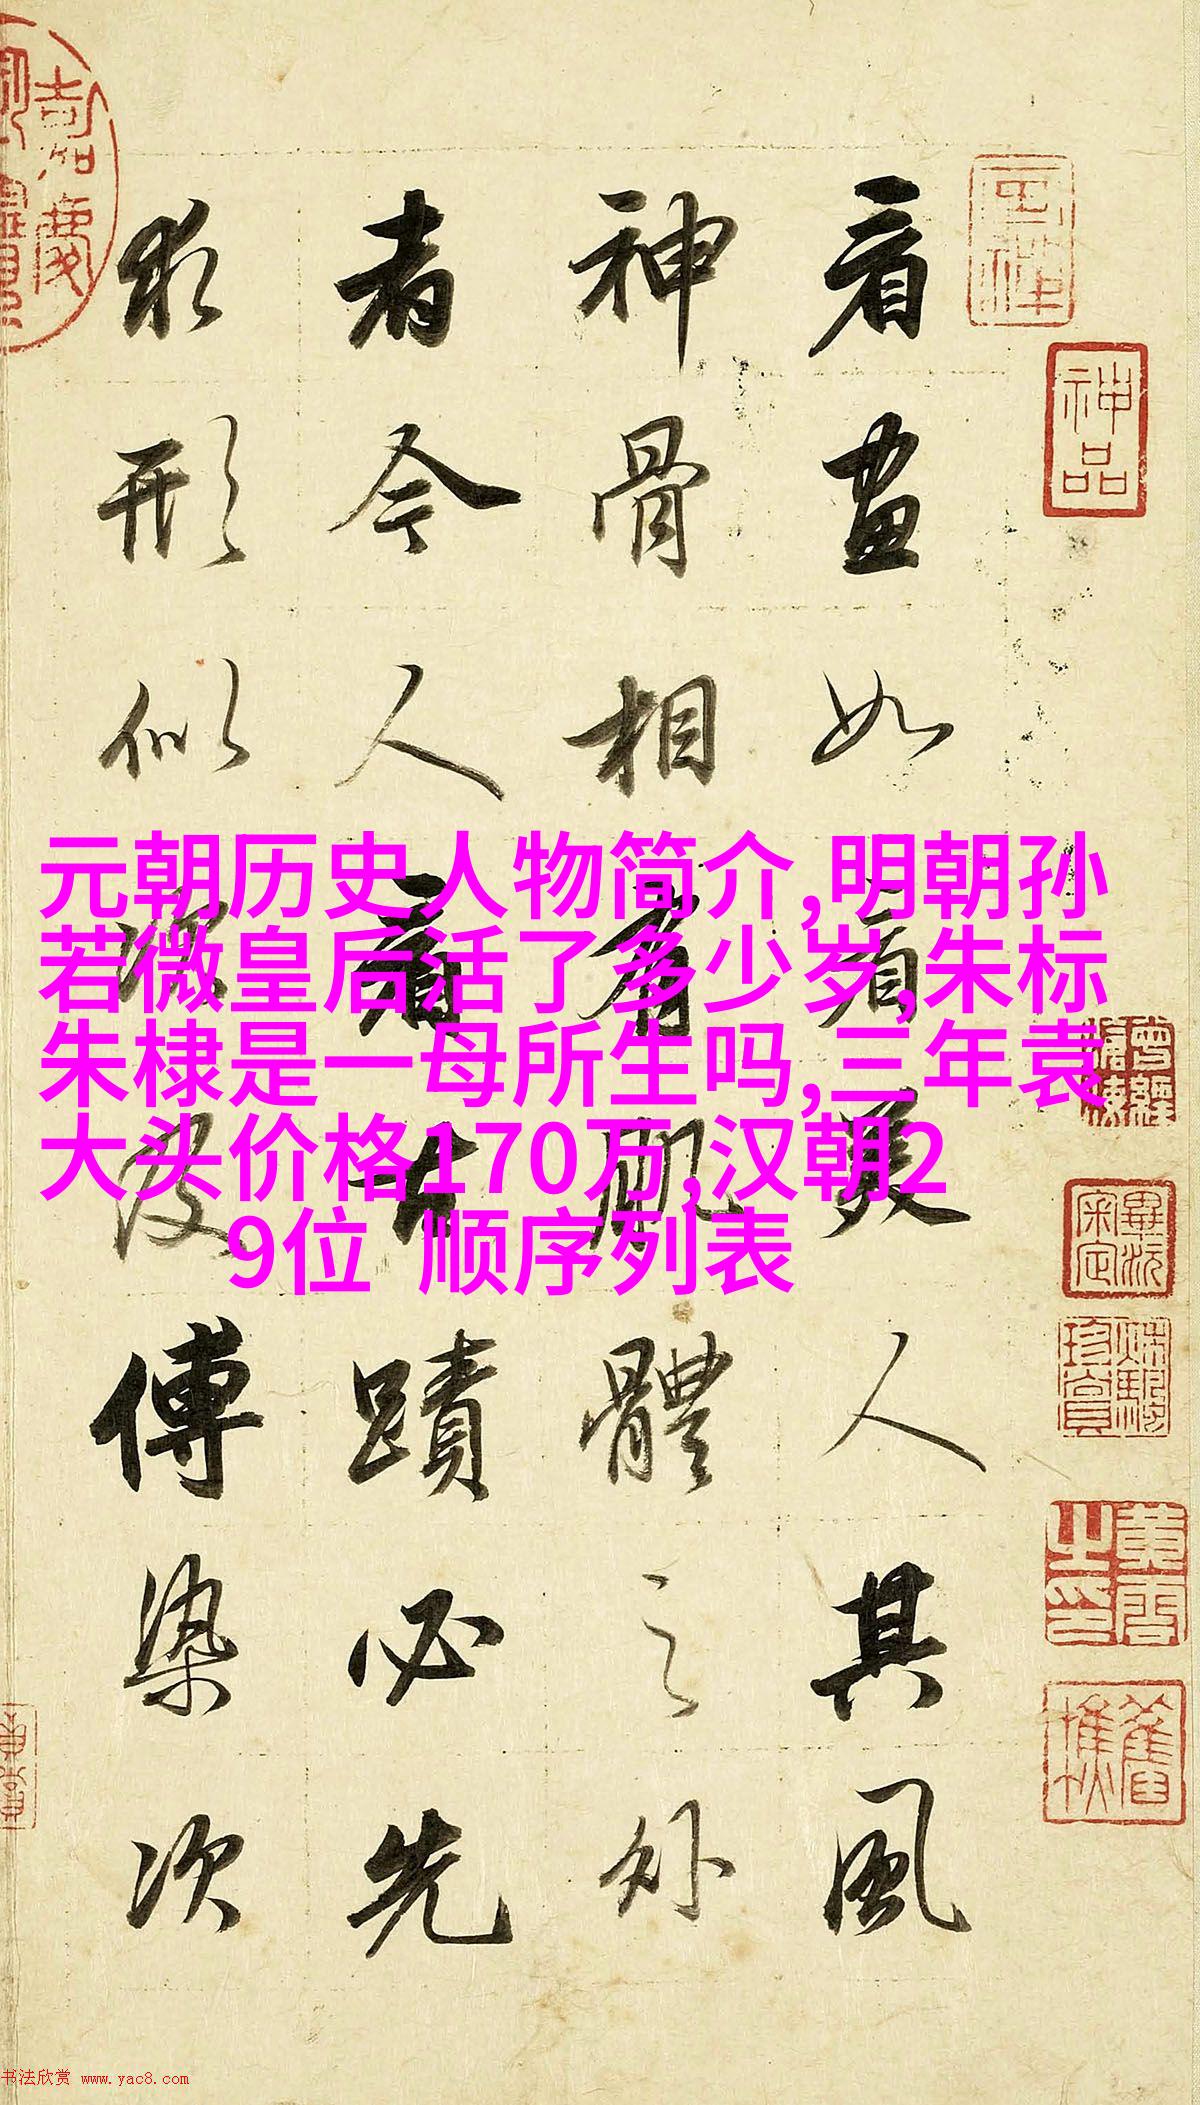 看画如看美人其風
神骨相有肌體之外
者今人看古蹟必先
求形似次及傅染次
元朝历史人物简介,明朝孙
若微皇后活了多少岁,朱标
朱棣是一母所生吗,三年袁
大头价格170万,汉朝2
9位 顺序列表
神品
嘉慶
书法欣赏 www.yac8.com